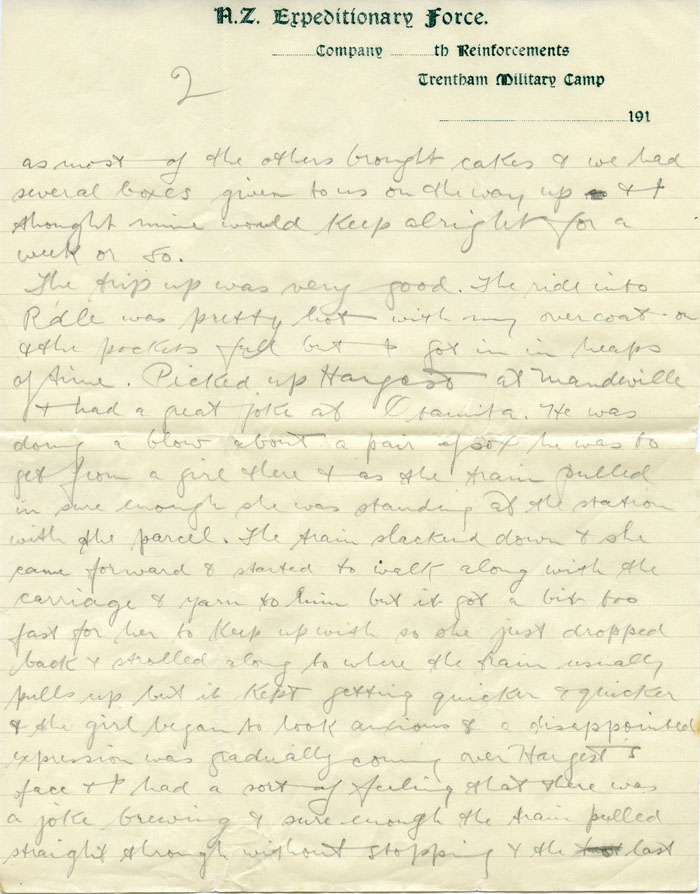 N.Z. Expeditionary Force.
Company th Reinforcements
Trentham Military Camp
191
2
as most of the others brought cakes & we had
several boxes given to us on the way up & I
thought mine would keep alright for a
week or so.
The trip up was very good. The ride into
R'dle was pretty hot with my overcoat on
& the pockets full but I got in in heaps
of time. Picked up Hargest at Mandeville
& had a great joke at Otamita. He was
doing a blow about a pair of sox he was to
get from a girl there & as the train pulled
in sure enough she was standing at the station
with the parcel. The train slackend down & she
came forward & started to walk along with the
carriage & yarn to him but it got a bit too
fast for her to keep up with so she just dropped
back & strolled along to where the train usually
pulls up but it kept getting quicker & quicker
& the girl began to look anxious & a disappointed
expression was gradually coming over Hargest's
face & I had a sort of feeling that there was
a joke brewing & sure enough the train pulled
straight through without stopping & the last